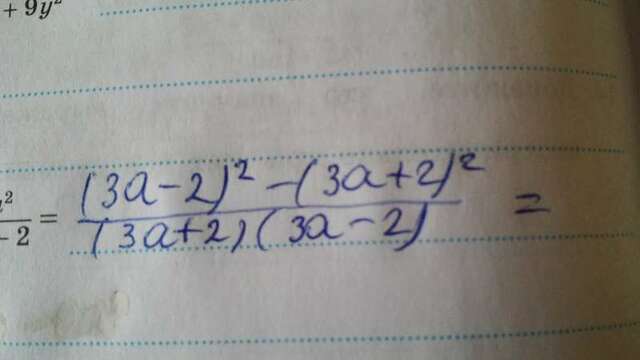 + 9y²
² = (3a-2)² - (3a+2)² / (3a+2)(3a-2) =
- 2